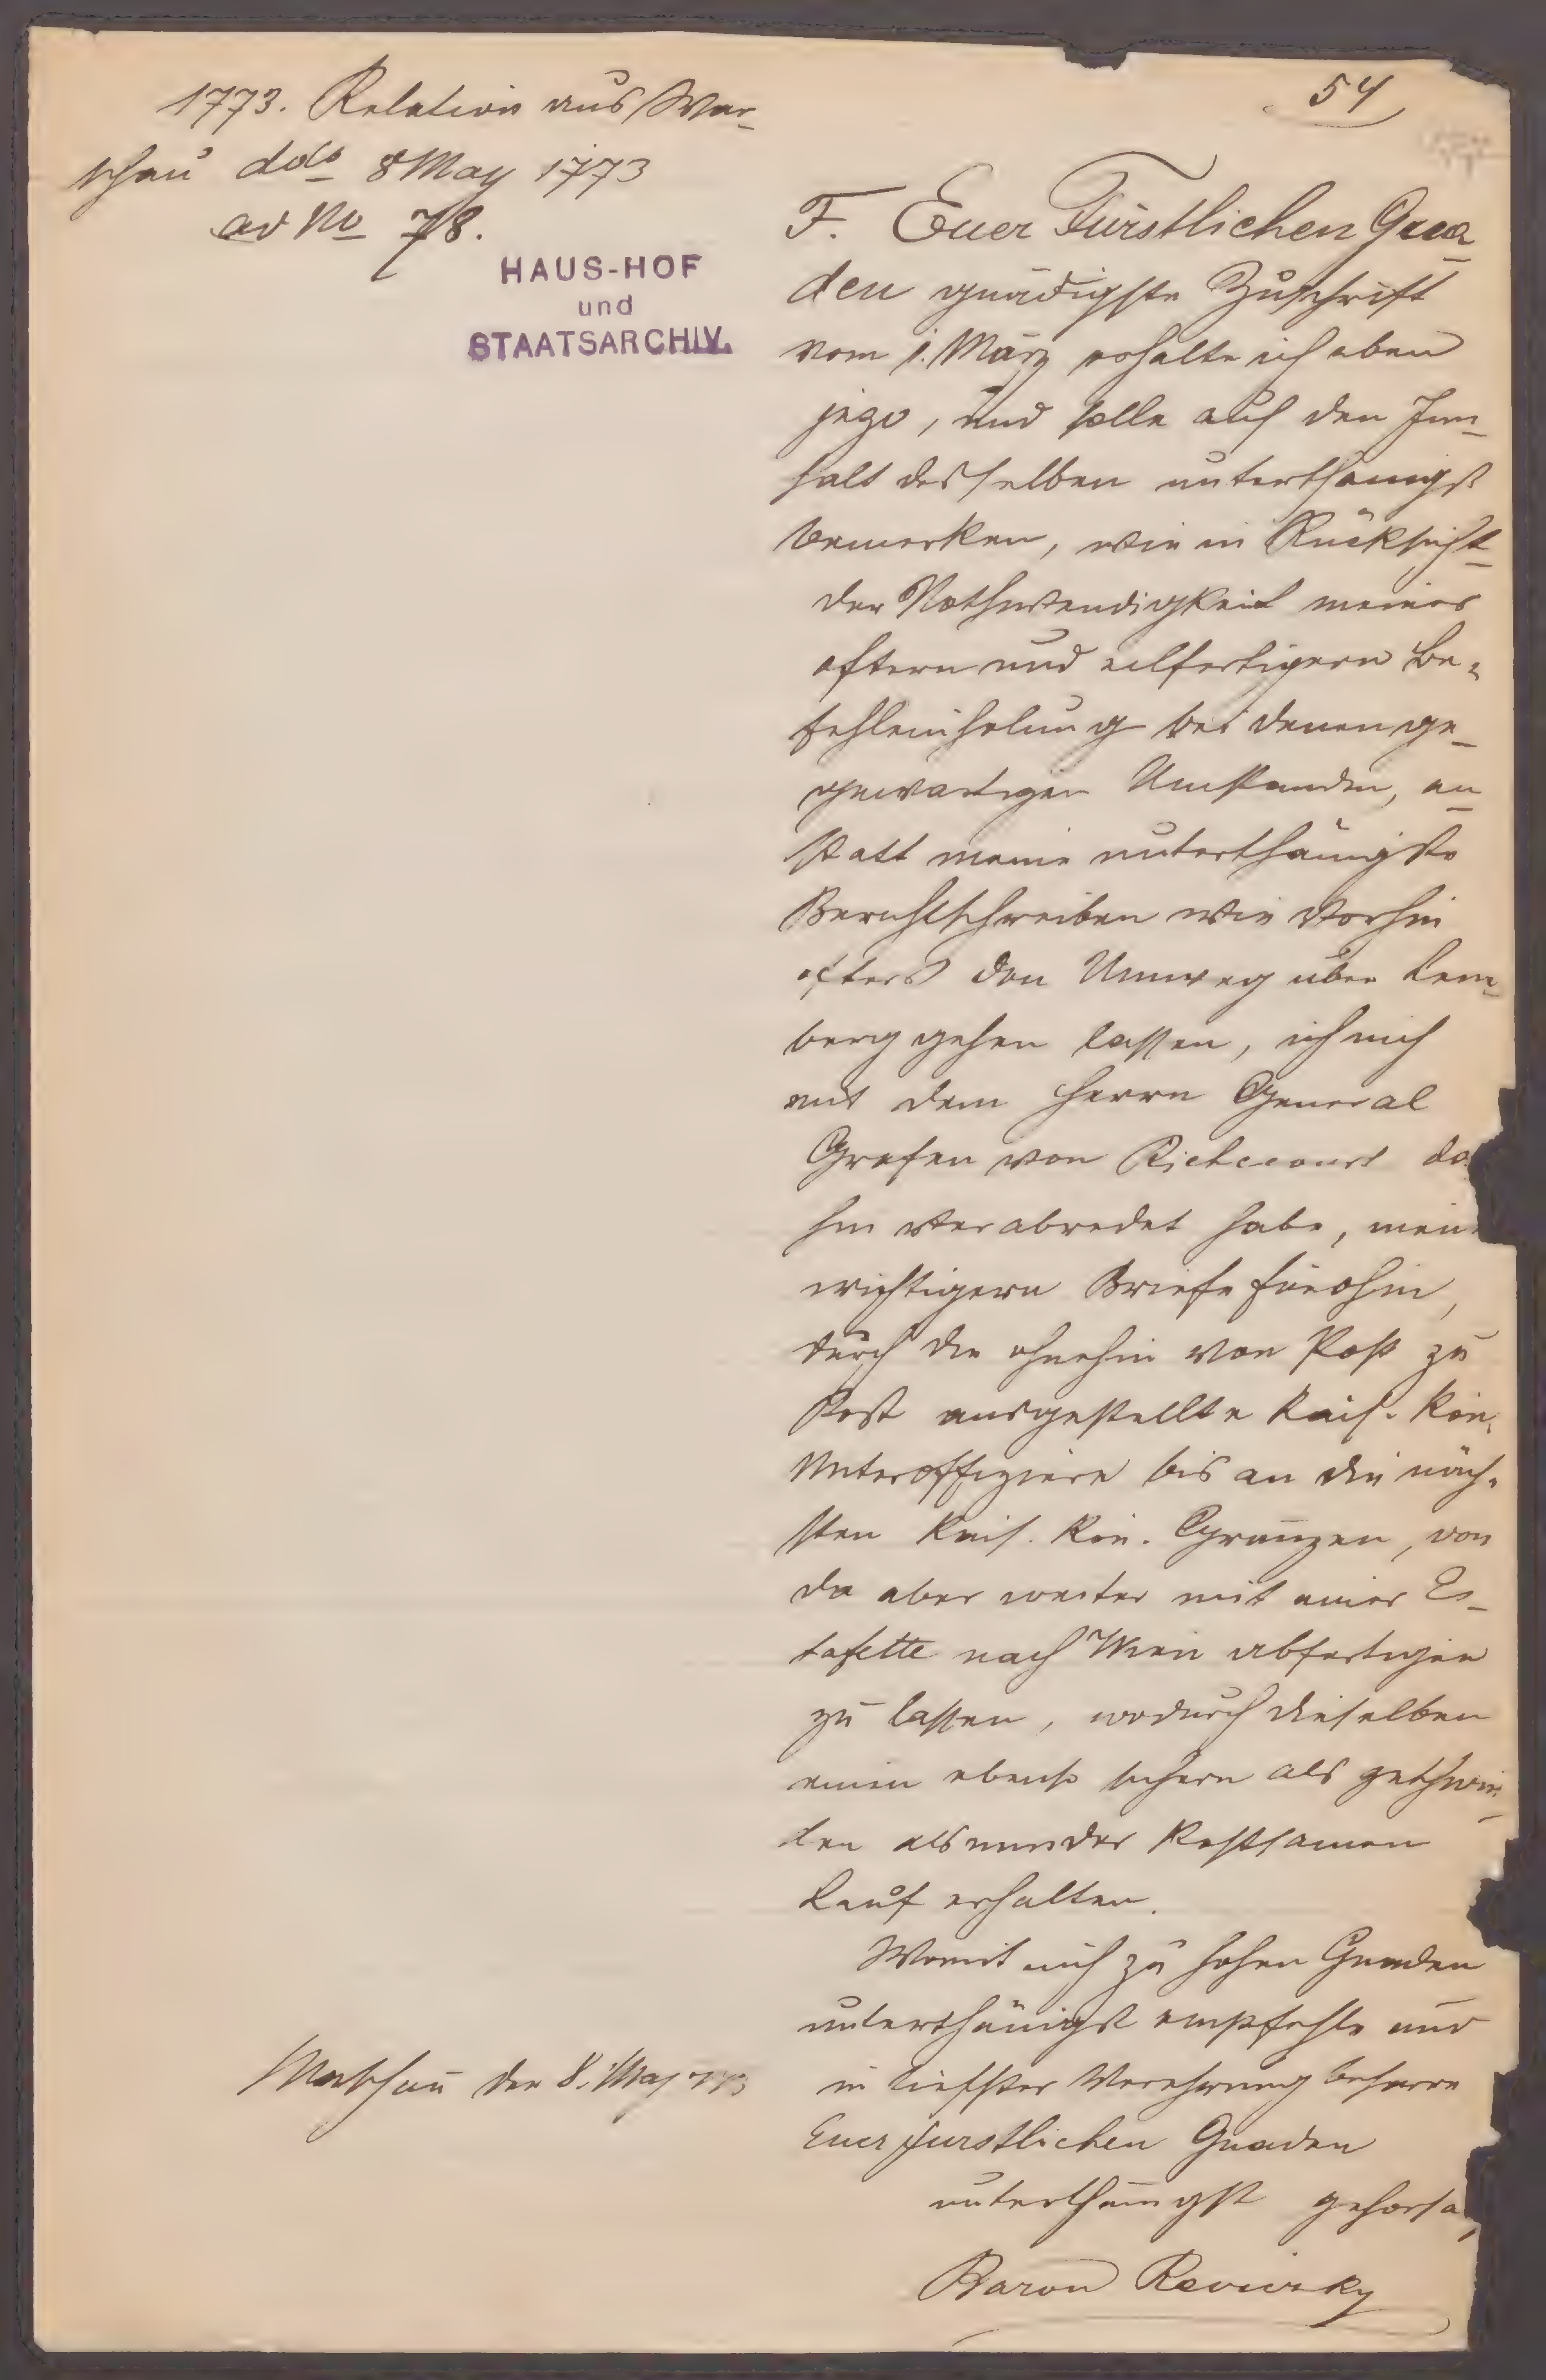 1773. Relation aus War-
schau ddo 8 May 1773
ad No 78.
HAUS-HOF
und
STAATSARCHIV.
54
F. Euer Fürstlichen Gna-
den gnädigste Zuschrift
vom 1. März erhalte ich eben
jezo, und solle auf den Inn-
halt desselben unterthänigst
bemerken, wie in Rücksicht
der Nothwendigkeit meiner
oftern und eilfertigern Be-
fehleinholung bei denen ge-
genwartigen Umstanden, an-
statt meine unterthänigste
Berichtschreiben wie vorhin
ofters den Umweg über Lem-
berg gehen lassen, ich mich
mit dem Herrn General
Grafen von Richecourt da
hin verabredet habe, meine
wichtigern Briefe fürohin,
durch die ohnehin von Post zu
Post ausgestellte Kais. Kön.
Unteroffiziere bis an die näch-
sten Kais. Kön. Gränzen, von
da aber weiter mit einer Es-
tafette nach Wien abfertigen
zu lassen, wodurch dieselben
einen ebenso sichern als geschwin-
den als minder kostsamen
Lauf erhalten.
Womit mich zu hohen Gnaden
unterthänigst empfehle und
in tiefster Verehrung beharre
Euer furstlichen Gnaden
unterthänigst gehorsa
Baron Reviczky
Warschau den 8. May 773